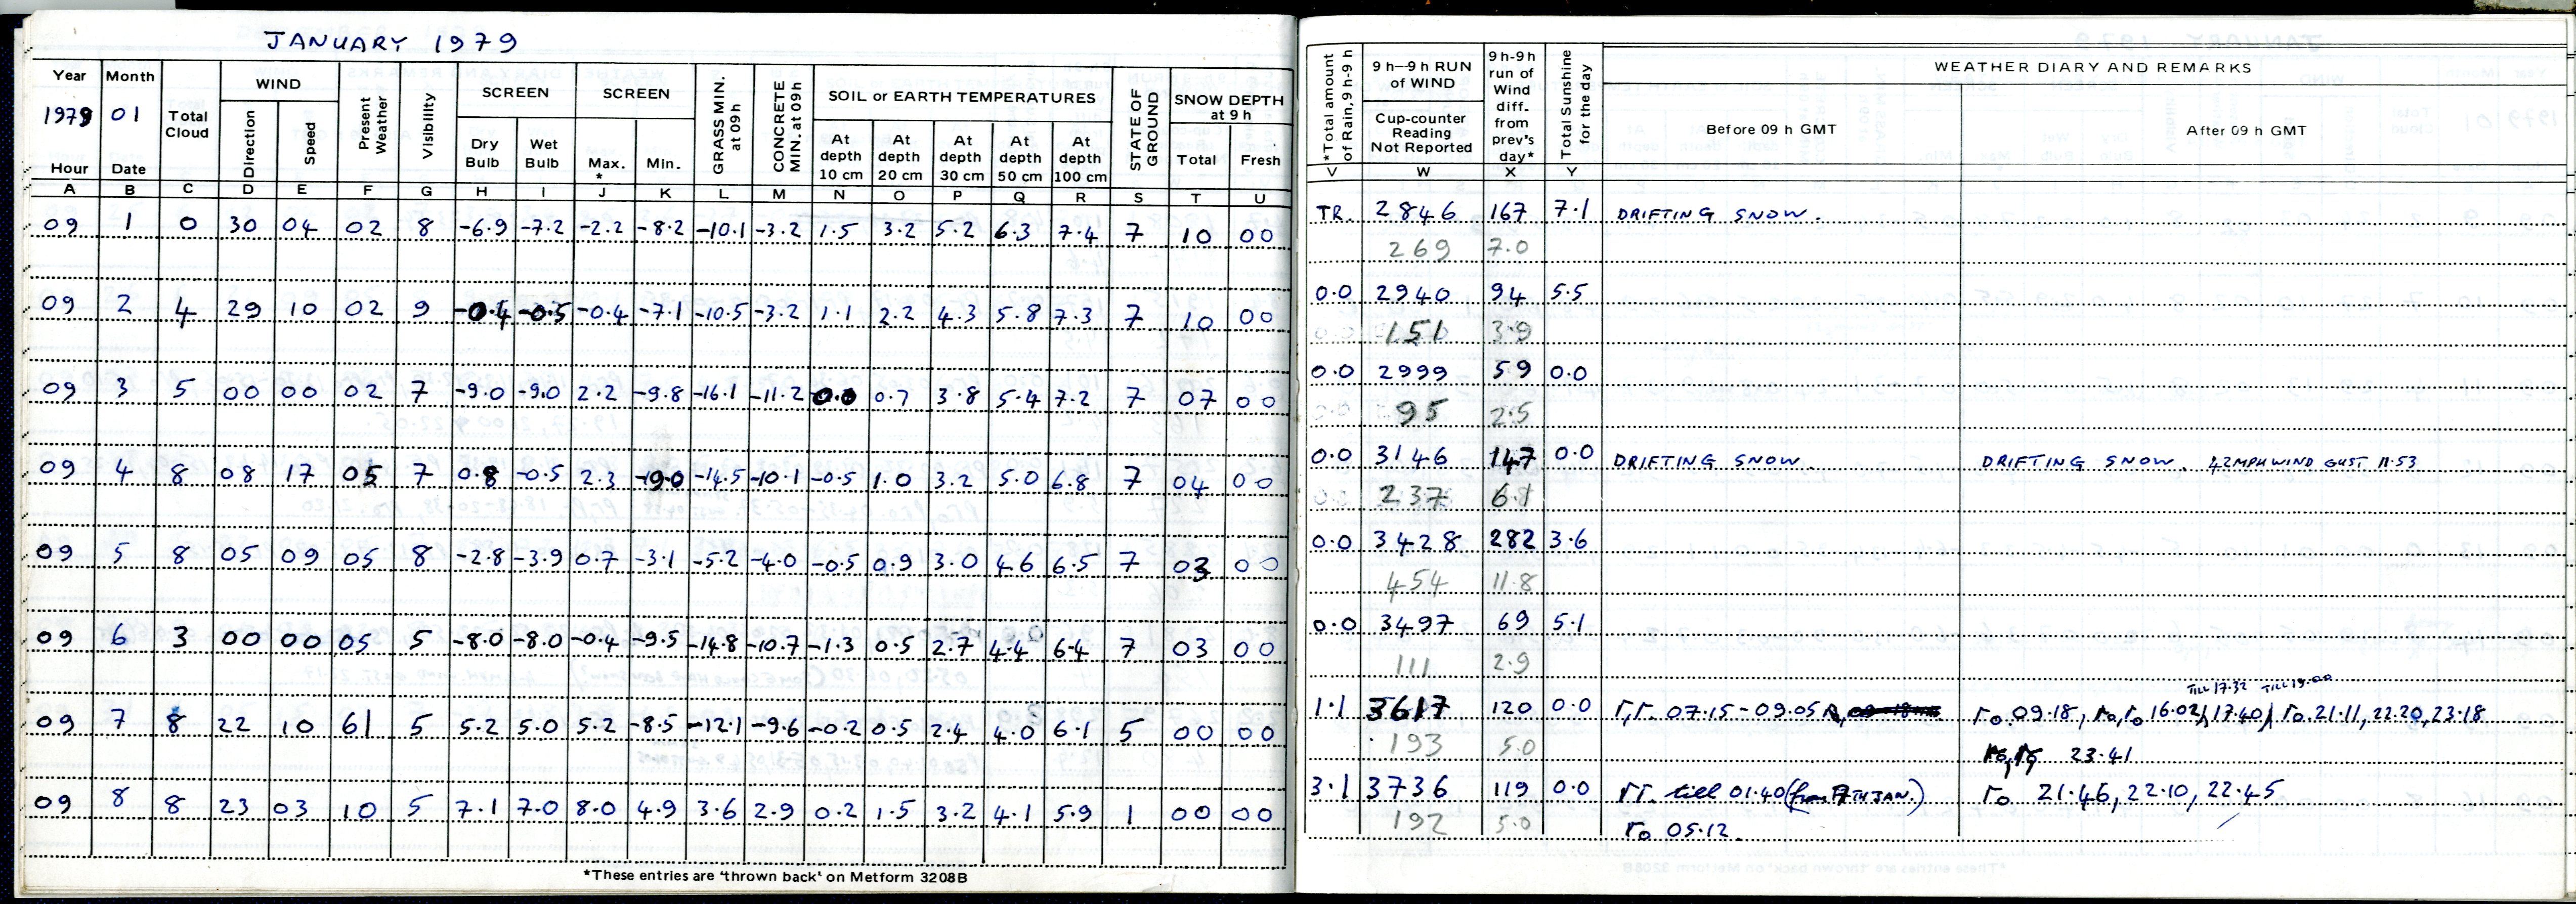 JANUARY 1979
Year Month Total Cloud WIND Present Weather Visibility SCREEN SCREEN GRASS MIN. at 09h CONCRETE MIN. at 09h SOIL or EARTH TEMPERATURES STATE OF GROUND SNOW DEPTH at 9 h
1979 01 Direction Speed Dry Bulb Wet Bulb Max. * Min. At depth 10 cm At depth 20 cm At depth 30 cm At depth 50 cm At depth 100 cm Total Fresh
Hour Date
A B C D E F G H I J K L M N O P Q R S T U
09 1 0 30 04 02 8 -6.9 -7.2 -2.2 -8.2 -10.1 -3.2 1.5 3.2 5.2 6.3 7.4 7 10 00
09 2 4 29 10 02 9 -0.4 -0.5 -0.4 -7.1 -10.5 -3.2 1.1 2.2 4.3 5.8 7.3 7 10 00
09 3 5 00 00 02 7 -9.0 -9.0 2.2 -9.8 -16.1 -11.2 0.0 0.7 3.8 5.4 7.2 7 07 00
09 4 8 08 17 05 7 0.8 -0.5 2.3 -9.0 -14.5 -10.1 -0.5 1.0 3.2 5.0 6.8 7 04 00
09 5 8 05 09 05 8 -2.8 -3.9 0.7 -3.1 -5.2 -4.0 -0.5 0.9 3.0 4.6 6.5 7 03 00
09 6 3 00 00 05 5 -8.0 -8.0 -0.4 -9.5 -14.8 -10.7 -1.3 0.5 2.7 4.4 6.4 7 03 00
09 7 8 22 10 61 5 5.2 5.0 5.2 -8.5 -12.1 -9.6 -0.2 0.5 2.4 4.0 6.1 5 00 00
09 8 8 23 03 10 5 7.1 7.0 8.0 4.9 3.6 2.9 0.2 1.5 3.2 4.1 5.9 1 00 00
*These entries are 'thrown back' on Metform 3208B
*Total amount of Rain, 9h-9h 9 h-9 h RUN of WIND 9 h-9h run of Wind diff. from prev's day* Total Sunshine for the day WEATHER DIARY AND REMARKS
Cup-counter Reading Not Reported Before 09 h GMT After 09 h GMT
V W X Y
TR. 2846 167 7.1 DRIFTING SNOW.
269 7.0
0.0 2940 94 5.5
151 3.9
0.0 2999 59 0.0
95 2.5
0.0 3146 147 0.0 DRIFTING SNOW. DRIFTING SNOW. 42MPH WIND GUST 11.53
237 6.1
0.0 3428 282 3.6
454 11.8
0.0 3497 69 5.1
111 2.9
TILL 17.32 TILL 19.00
1.1 3617 120 0.0 r,r. 07.15-09.05 ro 09.18, ro 16.02, 17.40, ro. 21.11, 22.20, 23.18
193 5.0 23.41
3.1 3736 119 0.0 rr. till 01.40 (from 7TH JAN.) ro 21.46, 22.10, 22.45
192 5.0 ro 05.12.